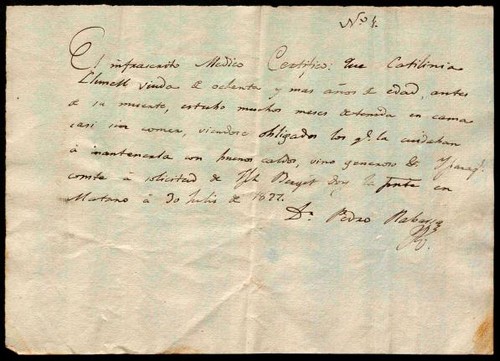 Nº 4.
El infrascrito Medico Certifico: Que Catilinia
Llunell viuda de ochenta y mas años de edad, antes
de su muerte, estubo muchos meses detenida en cama
casi sin comer, viendose obligados los qe. la cuidaban
á mantenerla con buenos caldos, vino generoso &. Y paraqe.
conste á solicitud de doy la prete. en
Mataro á 20 Julio de 1827.
Dr. Pedro